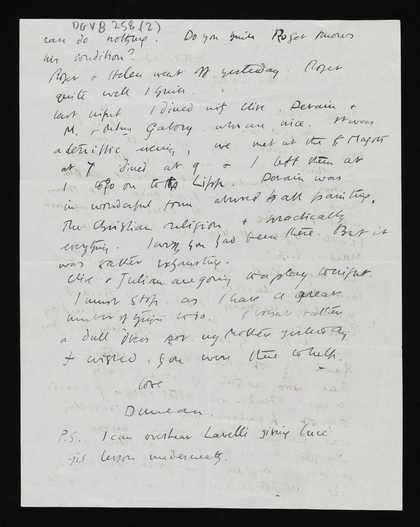 DGVB 258 (2)
can do nothing. Do you think Roger knows
his condition?
Roger & Helen went off yesterday. Roger
quite well I think.
Last night I dined with Clive, Derain &
M. & Mme Gabory who are nice. It was
a terrific evening, we met at the 2 Magots
at 7 dined at 9 & I left them at
1 to go on to the Lipp. Derain was
in wonderful form abused all painting,
the Christian religion & practically
everything. I wish you had been there. But it
was rather exhausting.
Clive & Julian are going to a play tonight
I must stop as I have a great
number of things to do. I bought rather
a dull dress for my mother yesterday
& wished you were there to help.
love
Duncan.
P.S. I can overhear Lavelli giving
his lesson underneath.